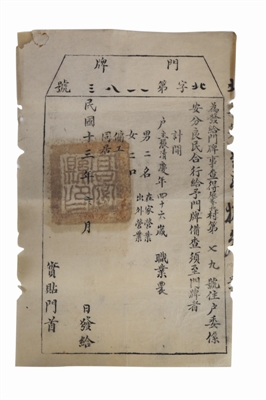 門牌
北字第一一八三號
爲發給門牌事查得村第七九號住戶委係
安分良民合行給予門牌備查須至門牌者
計開
户主張清慶年四十六歲 職業農
男二名 在家營業
女二口 出外營業
傭工
同居
民國十三年 月 日發給
實貼門首